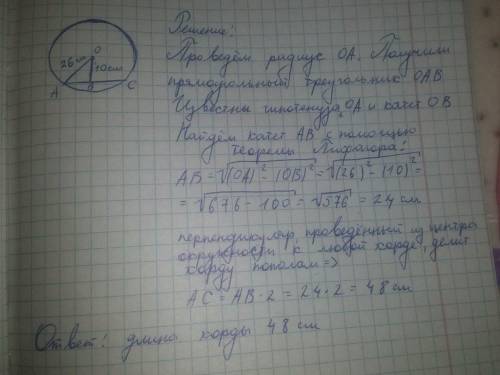 Решение:
О
26см
10см
А
В
С
Проведём радиус ОА. Получили
прямоугольный треугольник ОАВ.
Известны гипотенуза ОА и катет ОВ
Найдём катет АВ с помощью
теоремы Пифагора:
АВ = √(ОА)² - (ОВ)² = √(26)² - (10)² =
= √676 - 100 = √576 = 24 см
перпендикуляр, проведённый из центра
окружности к любой хорде делит
хорду пополам =>
АС = АВ · 2 = 24 · 2 = 48 см
Ответ: длина хорды 48 см